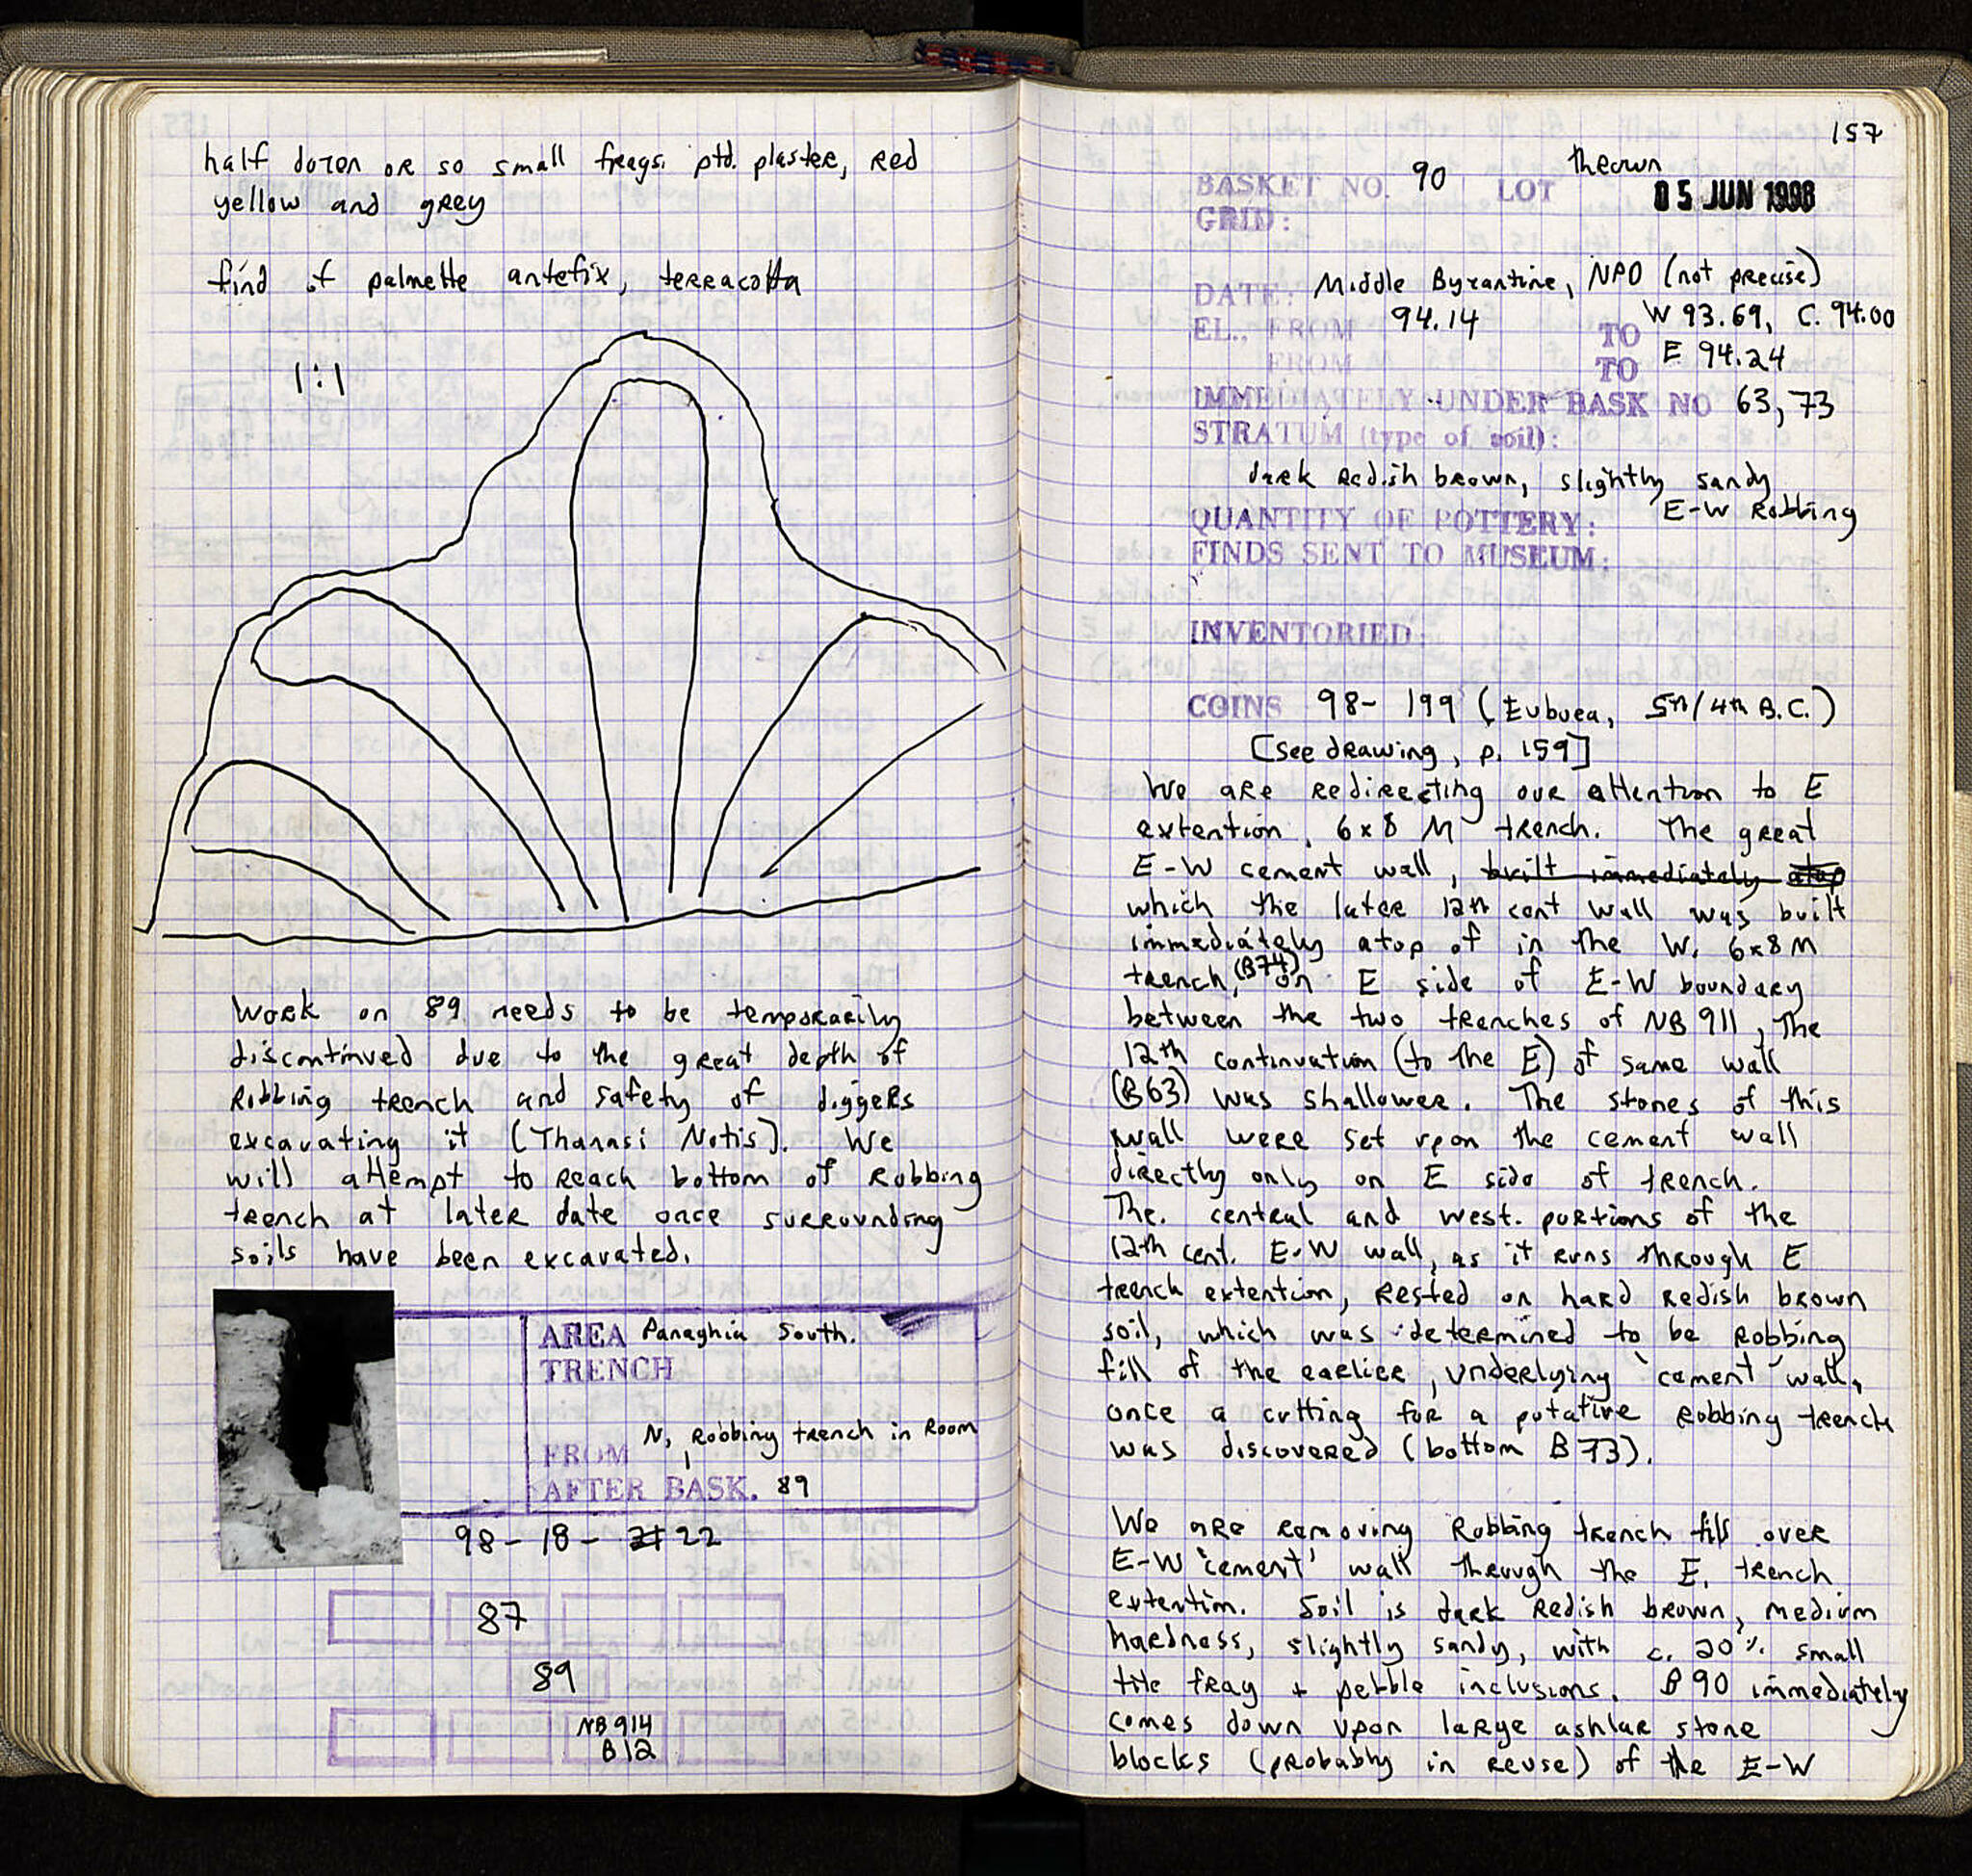 half dozen or so small frags. ptd. plaster, red
yellow and grey
find of palmette antefix, terracotta
1:1
Work on 89 needs to be temporarily
discontinued due to the great depth of
Robbing trench and safety of diggers
excavating it (Thanasi Notis). We
will attempt to reach bottom of Robbing
trench at later date once surrounding
soils have been excavated.
AREA Panaghia South.
TRENCH
N, Robbing trench in Room
FROM
AFTER BASK. 89
98-18-21 22
87
89
NB 914
B12
157
thrown
BASKET NO. 90 LOT 05 JUN 1998
GRID:
DATE: Middle Byzantine, NPD (not precise)
EL., FROM 94.14 TO W 93.69, C. 94.00
FROM TO E 94.24
IMMEDIATELY UNDER BASK NO 63, 73
STRATUM (type of soil):
dark redish brown, slightly sandy
E-W Robbing
QUANTITY OF POTTERY:
FINDS SENT TO MUSEUM:
INVENTORIED
COINS 98- 199 (Eubuea, 5th/4th B.C.)
[see drawing, p. 159]
We are redirecting our attention to E
extention, 6x8 M trench. The great
E-W cement wall, built immediately atop
which the later 12th cent wall was built
immediately atop of in the W. 6x8 M
trench, (B74) on E side of E-W boundary
between the two trenches of NB 911, The
12th continuation (to the E) of same wall
(B63) was shallower. The stones of this
wall were set upon the cement wall
directly only on E side of trench.
The central and west. portions of the
12th cent. E-W wall, as it runs through E
trench extention, rested on hard redish brown
soil, which was determined to be robbing
fill of the earlier, underlying 'cement' wall,
once a cutting for a putative robbing trench
was discovered (bottom B73).
We are removing Robbing trench fill over
E-W 'cement' wall through the E. trench
extention. Soil is dark redish brown, medium
hardness, slightly sandy, with c. 20% small
tile frag + pebble inclusions. B90 immediately
comes down upon large ashlar stone
blocks (probably in reuse) of the E-W